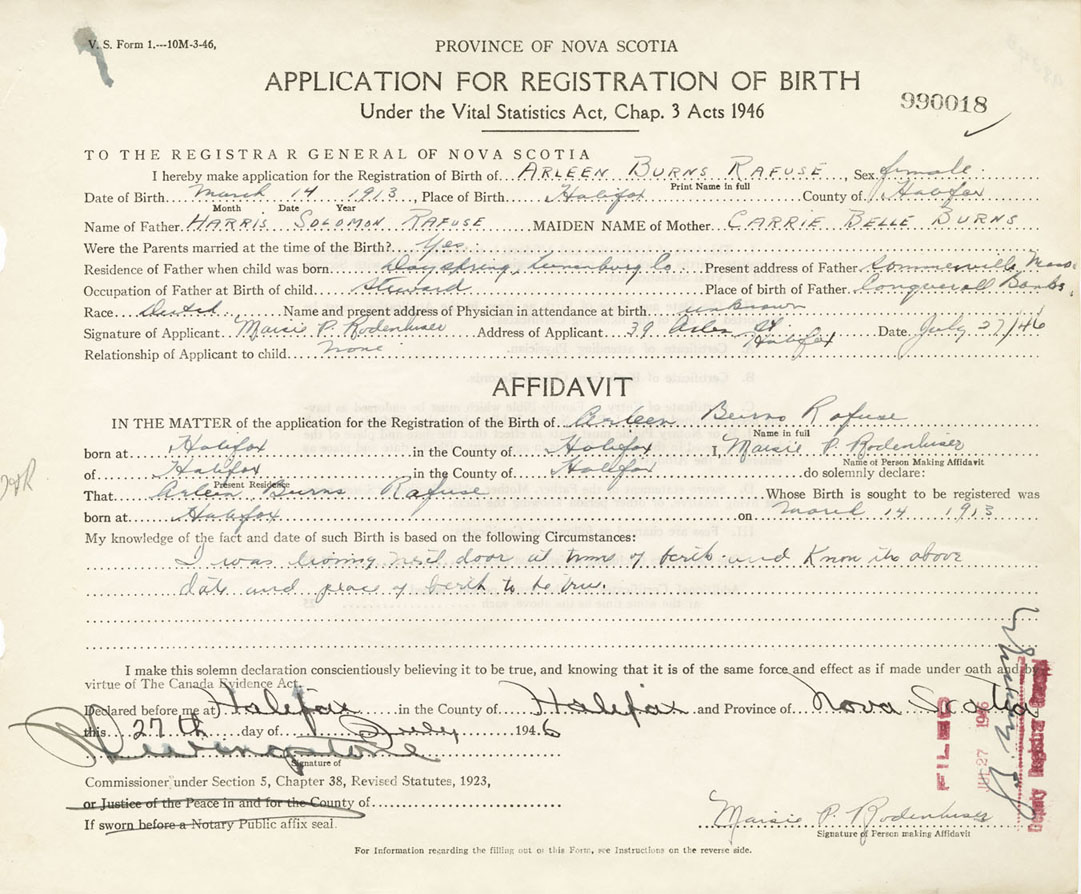 V. S. Form 1.---10M-3-46,
PROVINCE OF NOVA SCOTIA
APPLICATION FOR REGISTRATION OF BIRTH
990018
Under the Vital Statistics Act, Chap. 3 Acts 1946
TO THE REGISTRAR GENERAL OF NOVA SCOTIA
I hereby make application for the Registration of Birth of ARLEEN BURNS RAFUSE, Sex female
Print Name in full
Date of Birth March 14 1913 Place of Birth Halifax County of Halifax
Month Date Year
Name of Father HARRIS SOLOMON RAFUSE MAIDEN NAME of Mother CARRIE BELLE BURNS
Were the Parents married at the time of the Birth? Yes
Residence of Father when child was born Dayspring, Lunenburg Co Present address of Father Sommerville Mass.
Occupation of Father at Birth of child Steward Place of birth of Father Conquerall Banks.
Race Dutch Name and present address of Physician in attendance at birth unknown
Signature of Applicant Maisie P. Rodenhiser Address of Applicant 39 St. Halifax Date July 27/46
Relationship of Applicant to child none
AFFIDAVIT
IN THE MATTER of the application for the Registration of the Birth of Arleen Burns Rafuse
Name in full
born at Halifax in the County of Halifax I, Maisie P. Rodenhiser
Name of Person Making Affidavit
of Halifax in the County of Halifax do solemnly declare:
Present Residence
That Arleen Burns Rafuse Whose Birth is sought to be registered was
born at Halifax on March 14 1913
My knowledge of the fact and date of such Birth is based on the following Circumstances:
I was living next door at time of birth and know the above
date and place of birth to be true.
I make this solemn declaration conscientiously believing it to be true, and knowing that it is of the same force and effect as if made under oath and by
virtue of The Canada Evidence Act.
Declared before me at Halifax in the County of Halifax and Province of Nova Scotia
this 27th day of July 1946
Signature of
Commissioner under Section 5, Chapter 38, Revised Statutes, 1923,
or Justice of the Peace in and for the County of
If sworn before a Notary Public affix seal.
Maisie P. Rodenhiser
Signature of Person making Affidavit
FILED
JUL 27 1946
Deputy Registrar General
For Information regarding the filling out of this Form, see Instructions on the reverse side.